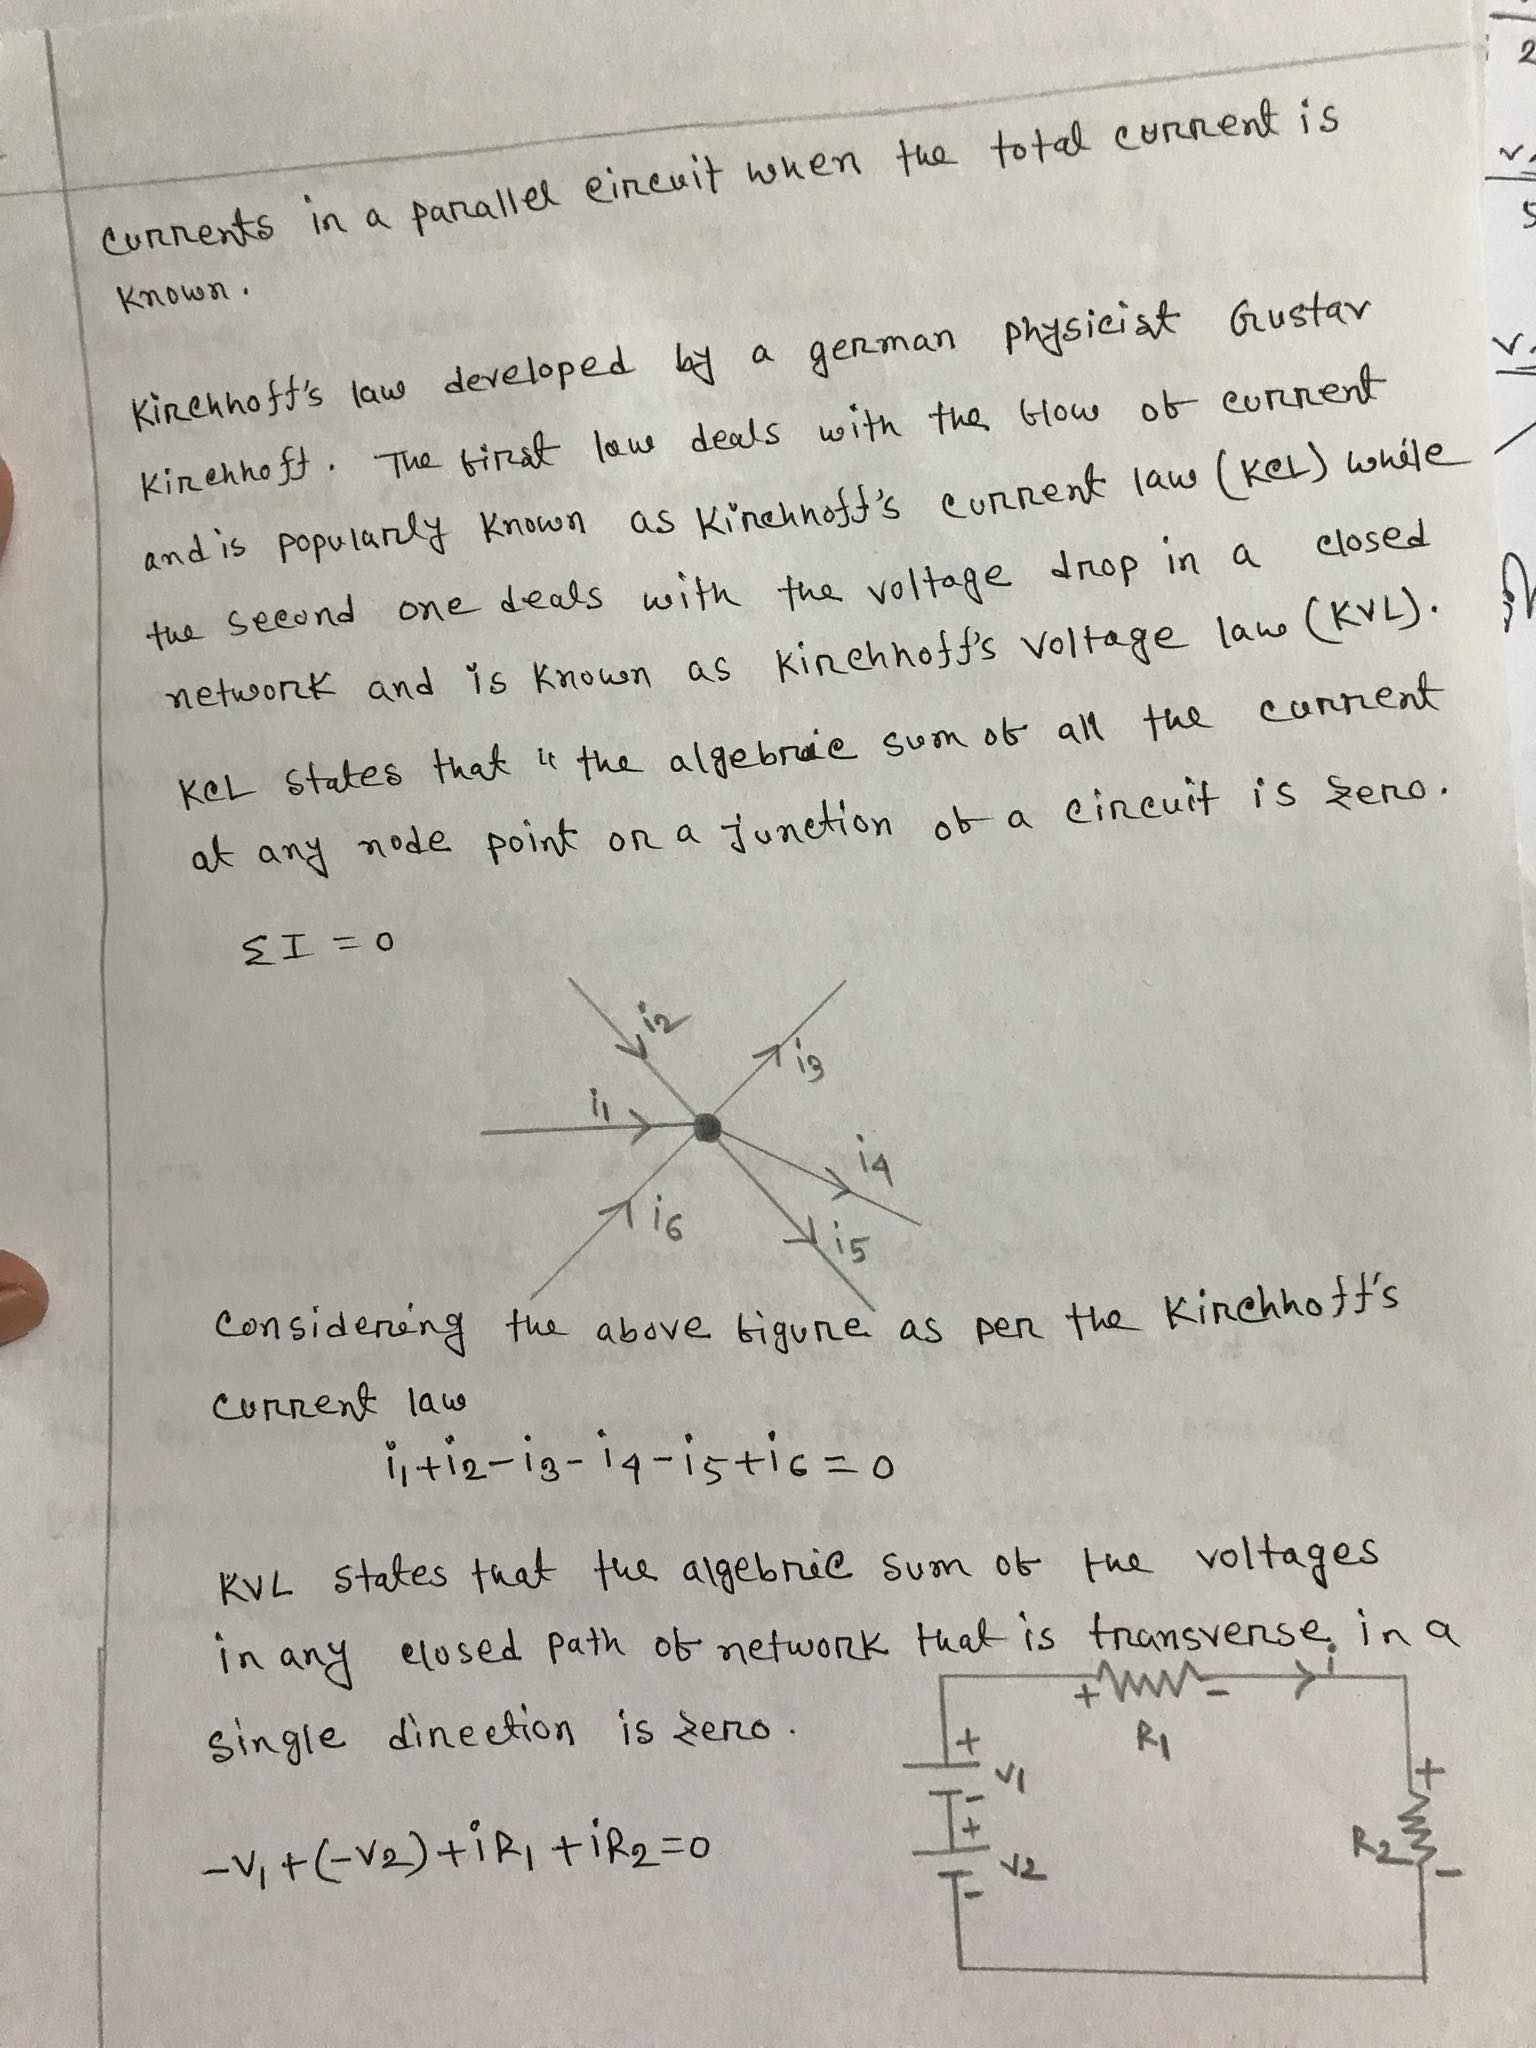 currents in a parallel circuit when the total current is
known.
Kirchhoff's law developed by a german physicist Gustav
Kirchhoff. The first law deals with the flow of current
and is popularly known as Kirchhoff's current law (KCL) while
the second one deals with the voltage drop in a closed
network and is known as Kirchhoff's voltage law (KVL).
KCL states that " the algebraic sum of all the current
at any node point or a junction of a circuit is zero.
ΣI = 0
i2
i3
i1
i4
i6
i5
Considering the above figure as per the Kirchhoff's
current law
i1+i2-i3-i4-i5+i6=0
KVL states that the algebric sum of the voltages
in any closed path of network that is transverse in a
single direction is zero.
+ - i
R1
+ V1
-
+ V2
-
+
R2
-
-V1+(-V2)+iR1+iR2=0